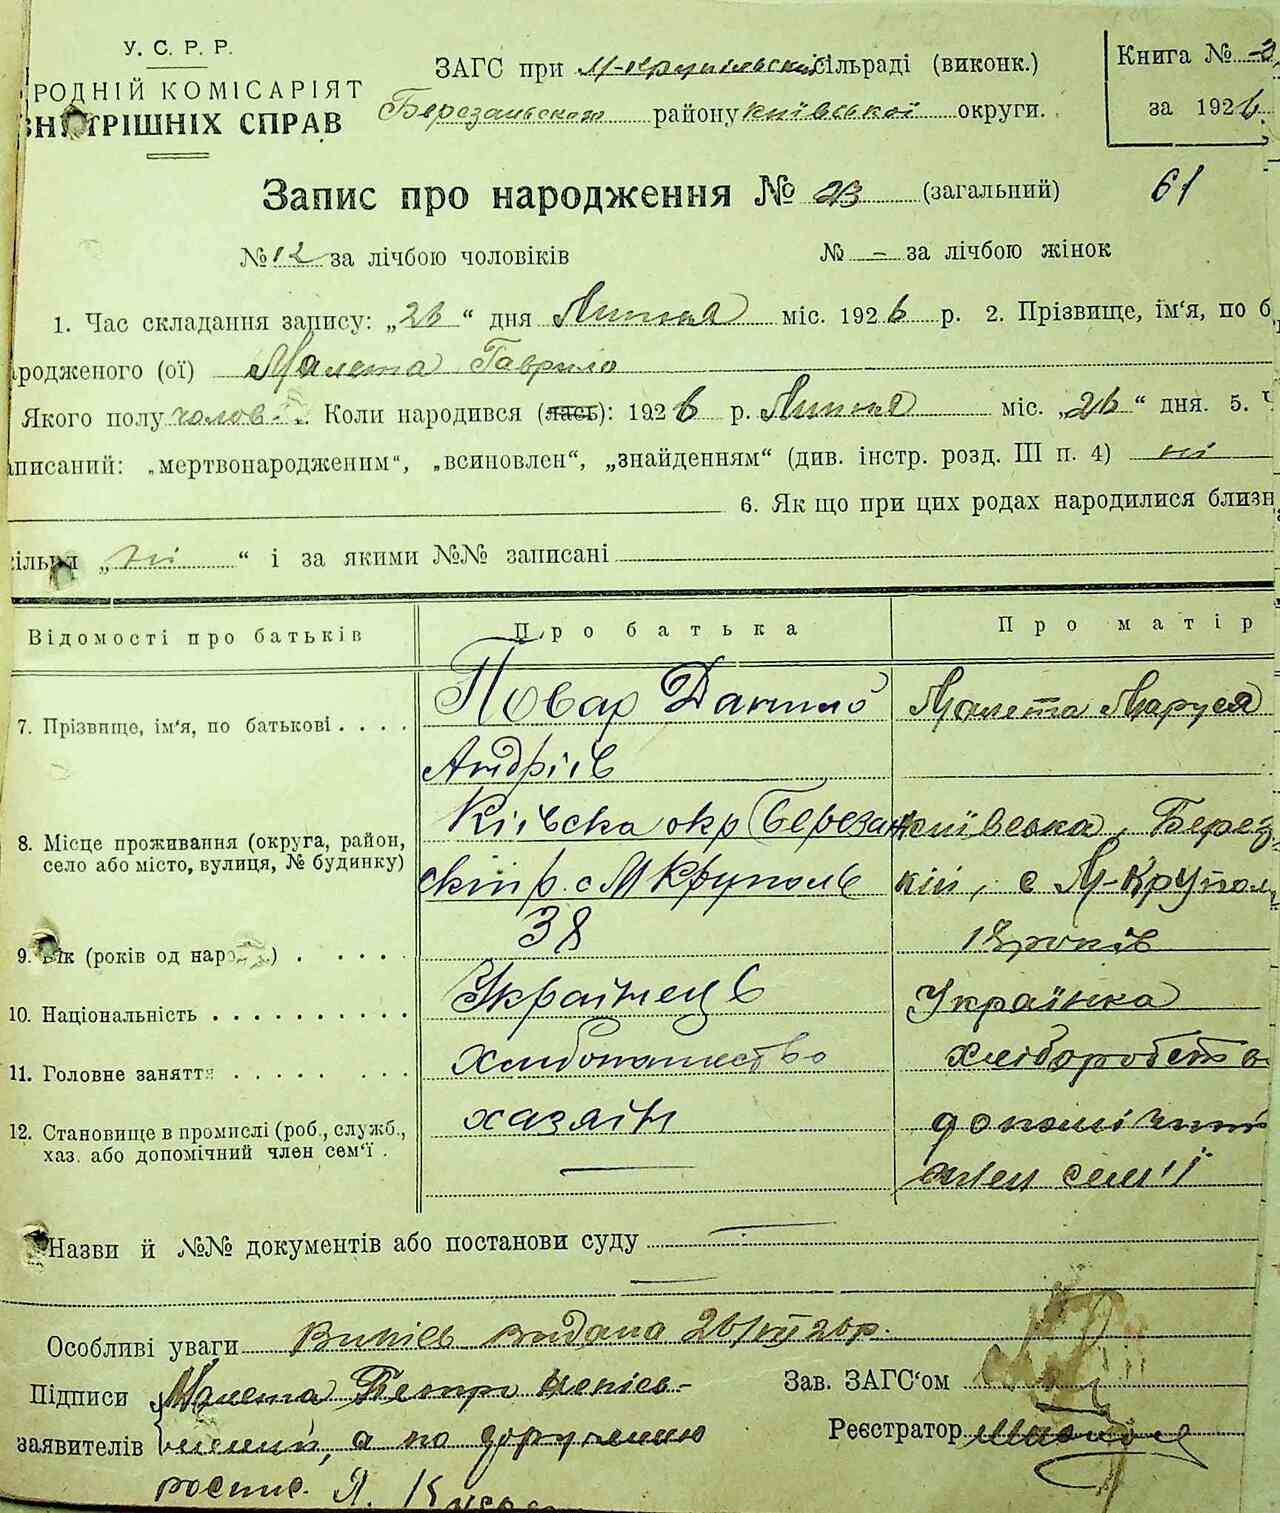 У. С. Р. Р.
РОДНІЙ КОМІСАРІЯТ
ВНУТРІШНІХ СПРАВ
ЗАГС при М-Крупільській сільраді (виконк.)
Березанськом району Київської округи.
Книга №
за 1926
Запис про народження № 23 (загальний)
61
№ 12 за лічбою чоловіків № - за лічбою жінок
1. Час складання запису: „26“ дня Липня міс. 1926 р. 2. Прізвище, ім‘я, по б
ародженого (ої) Малета Гаврило
Якого полу чолов. Коли народився (лась): 1926 р. Липня міс. „26“ дня. 5. Ч
аписаний: „мертвонародженим“, „всиновлен“, „знайденням“ (див. інстр. розд. III п. 4) ні
6. Як що при цих родах народилися близн
кільки „ні“ і за якими №№ записані
Відомості про батьків Про батька Про матір
7. Прізвище, ім‘я, по батькові . . . . Повар Данило Малета Маруся
Андріїв
8. Місце проживання (округа, район, село або місто, вулиця, № будинку) Київска окр Березан Київська, Берез
ский р. с М Круполь кій, с М-Крупол
9. Вік (років од народ.) . . . . . 38 18 років
10. Національність . . . . . . . . . . Українець Українка
11. Головне заняття . . . . . . . . хлибопашество хліборобств
12. Становище в промислі (роб., служб., хаз. або допомічний член сем‘ї . хазяїн допомічний
член сем'ї
Назви й №№ документів або постанови суду
Особливі уваги Випісь видана 26/VII 26 р.
Підписи Малета Петро непісь-
заявителів менний, а по дорученню
роспис. Я.
Зав. ЗАГС‘ом
Реєстратор